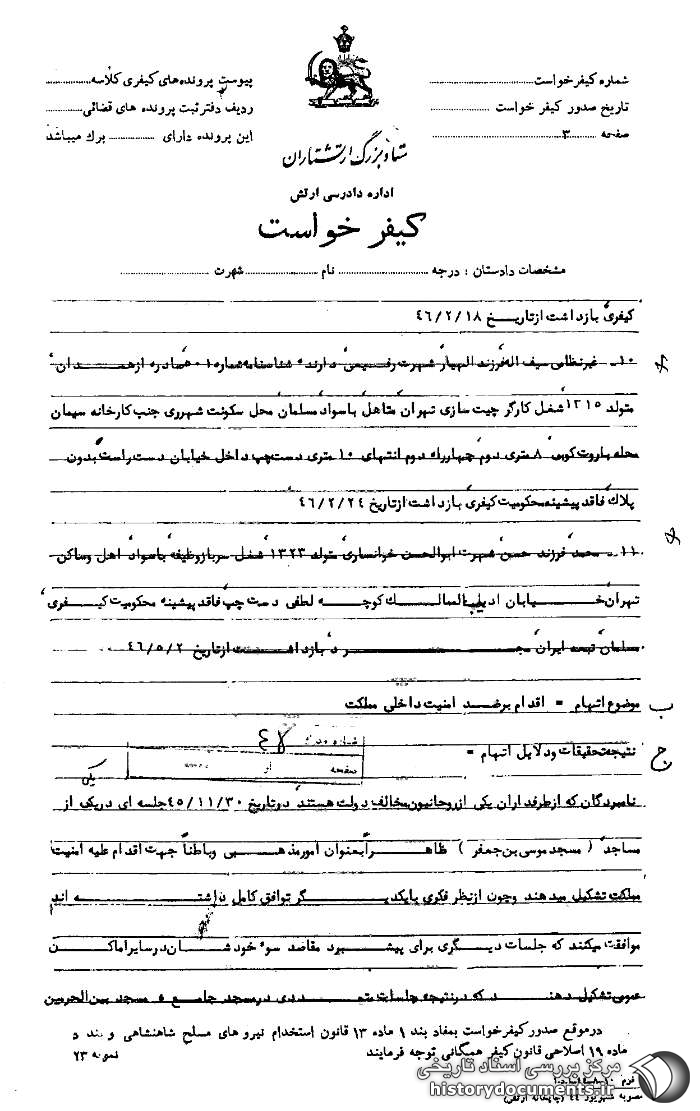 شماره کیفرخواست
تاریخ صدور کیفر خواست
صفحه ۳
پیوست پرونده‌های کیفری کلاسه
ردیف دفتر ثبت پرونده های قضائی
این پرونده دارای برگ میباشد
ستاد بزرگ ارتشتاران
اداره دادرسی ارتش
کیفر خواست
مشخصات دادستان : درجه نام شهرت
کیفری بازداشت ازتاریخ ۴۶/۲/۱۸
۱۰ـ غیرنظامی سیف اله فرزند الهیار شهرت رفیعی دارنده شناسنامه شماره ۵۰۱ صادره از همدان
متولد ۱۳۱۵ شغل کارگر چیت سازی تهران متاهل باسواد مسلمان محل سکونت شهرری جنب کارخانه سیمان
محله باروت کوبی ۸ متری دوم چهارراه دوم انتهای ۱۰ متری دست چپ داخل خیابان دست راست بدون
پلاک فاقد پیشینه محکومیت کیفری بازداشت ازتاریخ ۴۶/۲/۲۴
۱۱ـ محمد فرزند حسن شهرت ابوالحسن خوانساری متولد ۱۳۲۳ شغل سرباز وظیفه باسواد اهل وساکن
تهران خیابان ادیب الممالک کوچه لطفی دست چپ فاقد پیشینه محکومیت کیفری
مسلمان تبعه ایران مجرد بازداشت ازتاریخ ۴۶/۵/۲
ب موضوع اتهام = اقدام برضد امنیت داخلی مملکت
شماره
۴۸
صفحه
ج نتیجه تحقیقات ودلایل اتهام =
نامبردگان که ازطرفداران یکی ازروحانیون مخالف دولت هستند درتاریخ ۴۵/۱۱/۳۰ جلسه ای دریک از
مساجد ( مسجد موسی بن جعفر ) ظاهراً بعنوان امورمذهبی وباطناً جهت اقدام علیه امنیت
مملکت تشکیل میدهند وچون ازنظر فکری بایکدیگر توافق کامل داشته اند
موافقت میکنند که جلسات دیگری برای پیشبرد مقاصد سوء خودشان درسایر اماکن
عمومی تشکیل دهند که درنتیجه جلسات متعددی درمسجد جامع و مسجد بین الحرمین
درموقع صدور کیفرخواست بمفاد بند ۱ ماده ۱۳ قانون استخدام نیرو های مسلح شاهنشاهی و بند د
ماده ۱۹ اصلاحی قانون کیفر همگانی توجه فرمایند
نمونه ۲۳
مرکز بررسی اسناد تاریخی
historydocuments.ir
مصوبه شهریور ۴۴ (چاپخانه ارتش)